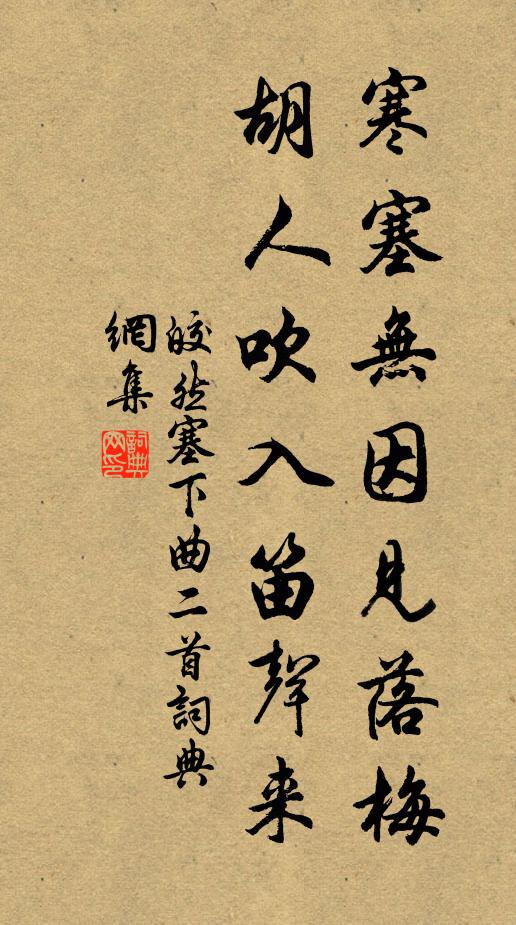 寒塞無因見落梅
胡人吹入笛聲来
皎然塞下曲二首詞典
網集
詞典
网印